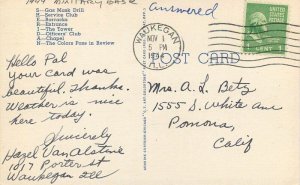 1944 MILITARY BASE
S—Gas Mask Drill
F—Service Club
E—Barracks
E—Entrance
I—The Tower
D—Officers' Club
A—Chapel
N—The Colors Pass in Review
answered
WAUKEGAN
NOV 1
5 PM
ILL.
1 CENT 1
POST CARD
Hello Pal
Your card was
beautiful. Thanks.
Weather is nice
here today.
Sincerely
Hazel Van Alstine
1017 Porter St
Waukegan Ill
Mrs. A. L. Betz
1555 S. White ave
Pomona,
Calif